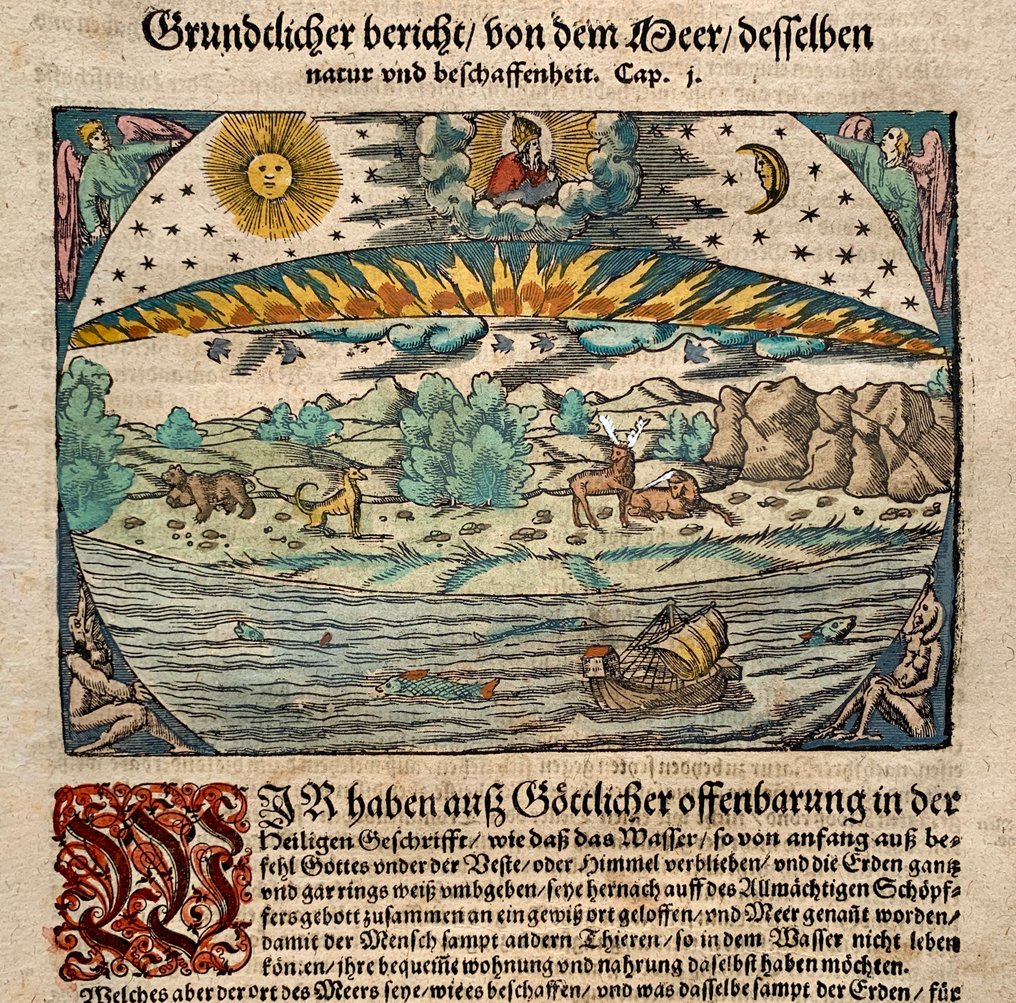 Grundtlicher bericht/ von dem Meer/ desselben
natur vnd beschaffenheit. Cap. j.
WJR haben auß Göttlicher offenbarung in der
Heiligen Geschrifft/ wie daß das Wasser/ so von anfang auß be-
fehl Gottes vnder der Veste/ oder Himmel verblieben/ vnd die Erden gantz
vnd gar rings weiß vmbgeben/ seye hernach auff des Allmächtigen Schöpf-
fers gebott zusammen an ein gewiß ort geloffen/ vnd Meer genañt worden/
damit der Mensch sampt andern Thieren/ so in dem Wasser nicht leben
können/ jhre bequem̃e wohnung vnd nahrung daselbst haben möchten.
Welches aber der ort des Meers seye/ wie es beschaffen/ vnd was dasselbe sampt der Erden/ für